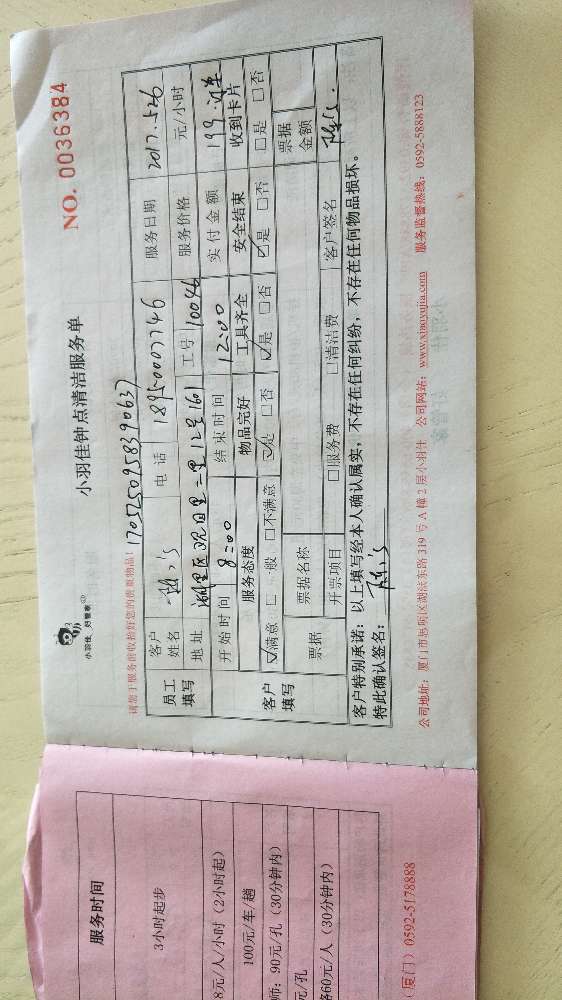 小羽佳 好管家
小羽佳钟点清洁服务单
NO. 0036384
1705250958390637
请您于服务前收拾好您的贵重物品!
员工填写
客户姓名
电话 18950007746
服务日期 2017.5.26
地址 湖里区观日里二里12号1601
工号 10046
服务价格 元/小时
开始时间 8:00
结束时间 12:00
实付金额 199
客户填写
服务态度 物品完好 工具齐全 安全结束 收到卡片
☑满意 □一般 □不满意 ☑是 □否 ☑是 □否 ☑是 □否 □是 □否
票据 票据名称 票据金额
开票项目 □服务费 □清洁费 客户签名
客户特别承诺:以上填写经本人确认属实,不存在任何纠纷,不存在任何物品损坏。
特此确认签名:
公司地址:厦门市思明区湖滨东路319号A幢2层小羽佳 公司网站:www.xiaoyujia.com 服务监督热线:0592-5888123
服务时间
3小时起步
8元/人/小时(2小时起)
100元/车/趟
师:90元/孔(30分钟内)
元/孔
60元/人(30分钟内)
(厦门)0592-5178888